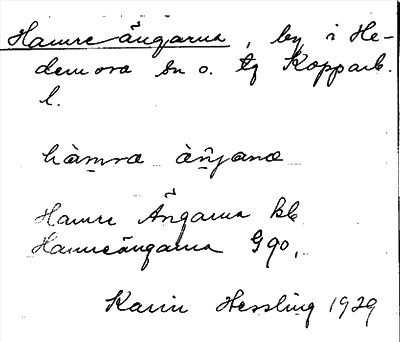 Hamre ängarna, by i He-
demora sn o. tg Kopparb.
l.
hàmra àŋana
Hamre Ängarna kb
Hamreängarna G 90,
Karin Hessling 1929